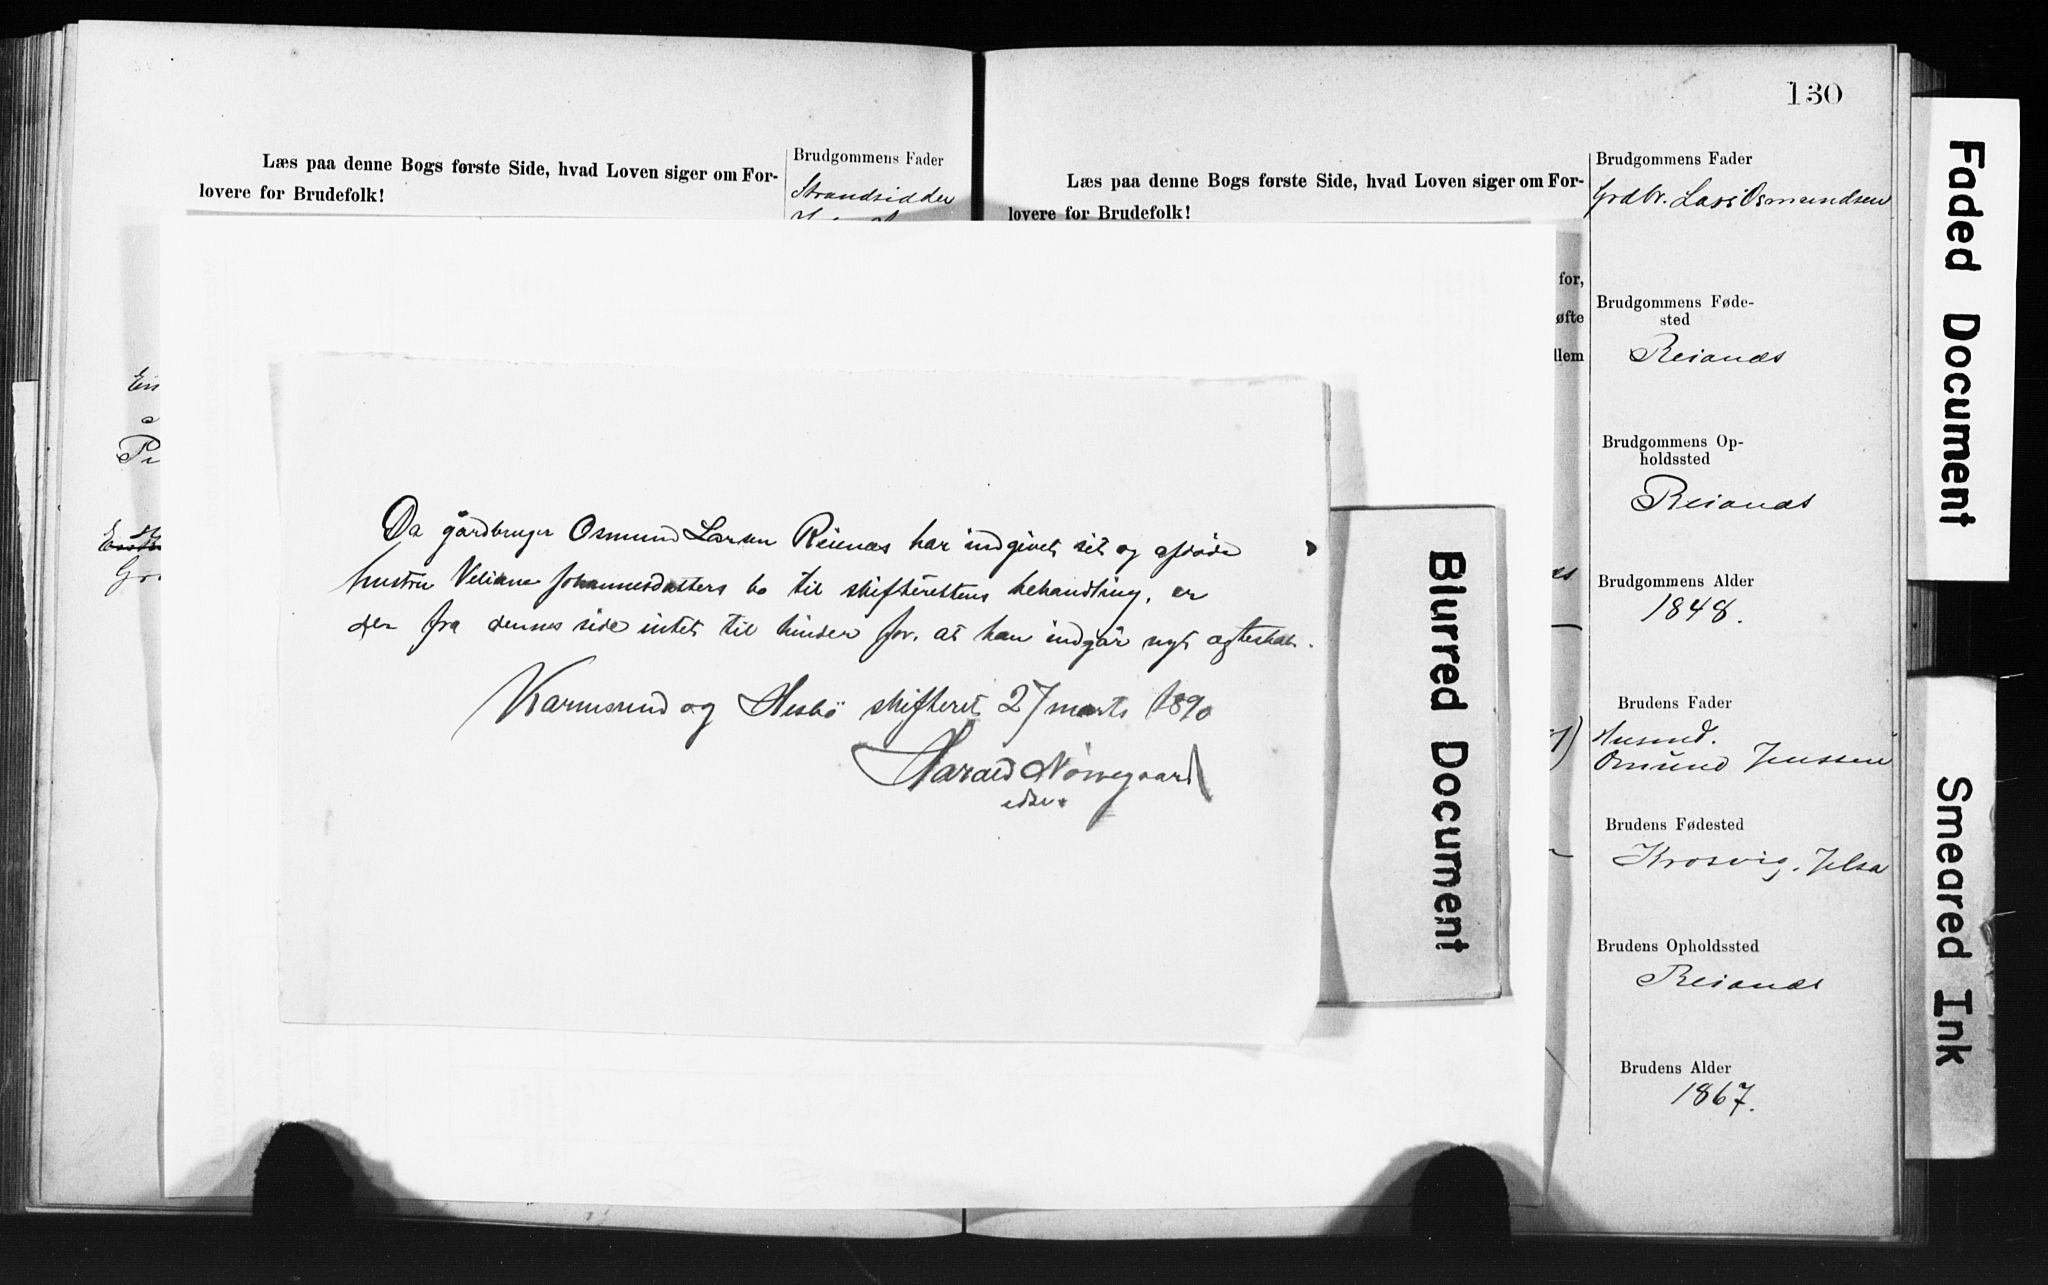 Læs paa denne Bogs første Side, hvad Loven siger om For-
lovere for Brudefolk!
Brudgommens Fader
Strandsidder
130
Læs paa denne Bogs første Side, hvad Loven siger om For-
lovere for Brudefolk!
for,
øfte
llem
Da gårdbruger Osmund Larsen Reienæs har indgivet sit og afdøde
hustru Veliane Johannesdatters bo til skifterettens behandling, er
der fra dennes side intet til hinder for, at han indgår nyt ægteskab.
Karmsund og Hesbö skifteret 27 marts 1890
Harald Nørregaard
edsv.
Brudgommens Fader
Grdbr. Lars Osmundsen
Brudgommens Føde-
sted
Reianæs
Brudgommens Op-
holdssted
Reianæs
Brudgommens Alder
1848.
Brudens Fader
Husmd.
Osmund Jenssen
Brudens Fødested
Krosvig, Jelsa
Brudens Opholdssted
Reianæs
Brudens Alder
1867.
Blurred Document
Faded Document
Smeared Ink